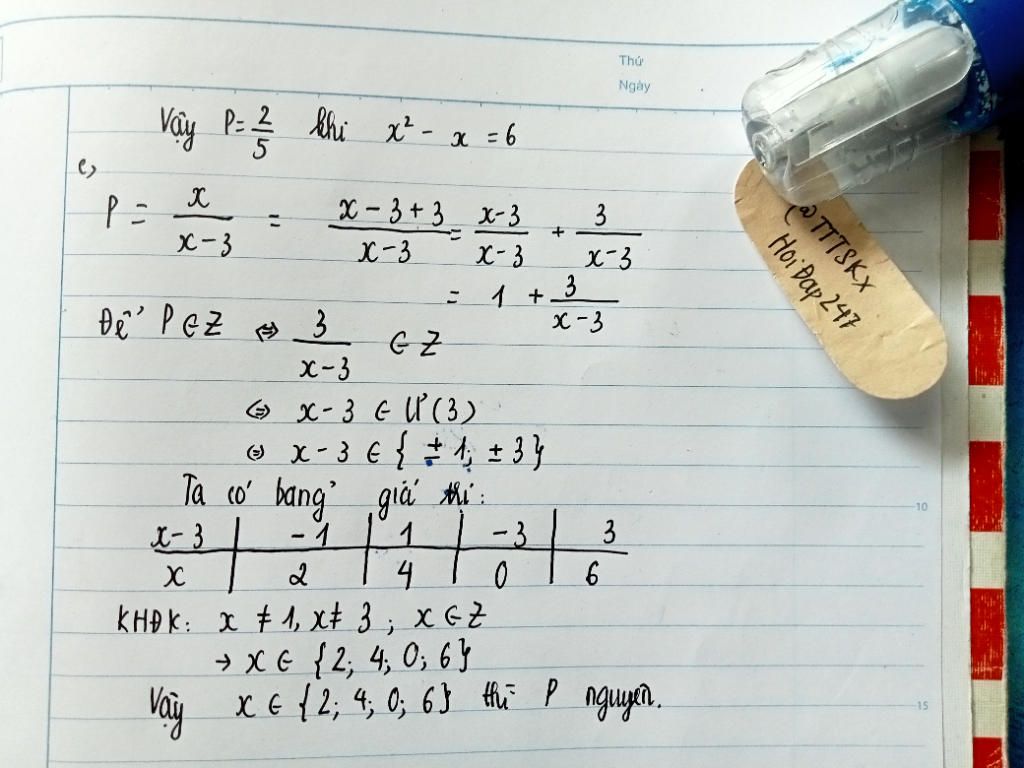 Thứ
Ngày
Vậy P = 2/5 khi x² - x = 6
c,
P = x/(x-3) = (x-3+3)/(x-3) = (x-3)/(x-3) + 3/(x-3)
= 1 + 3/(x-3)
Để P ∈ Z ⇔ 3/(x-3) ∈ Z
⇔ x-3 ∈ Ư(3)
⇔ x-3 ∈ { ±1; ±3}
Ta có bảng giá trị:
x-3 | -1 | 1 | -3 | 3
x | 2 | 4 | 0 | 6
KHĐK: x ≠ 1, x ≠ 3; x ∈ Z
→ x ∈ {2; 4; 0; 6}
Vậy x ∈ {2; 4; 0; 6} thì P nguyên.
10
15
@TTTSKX
HoiDap247